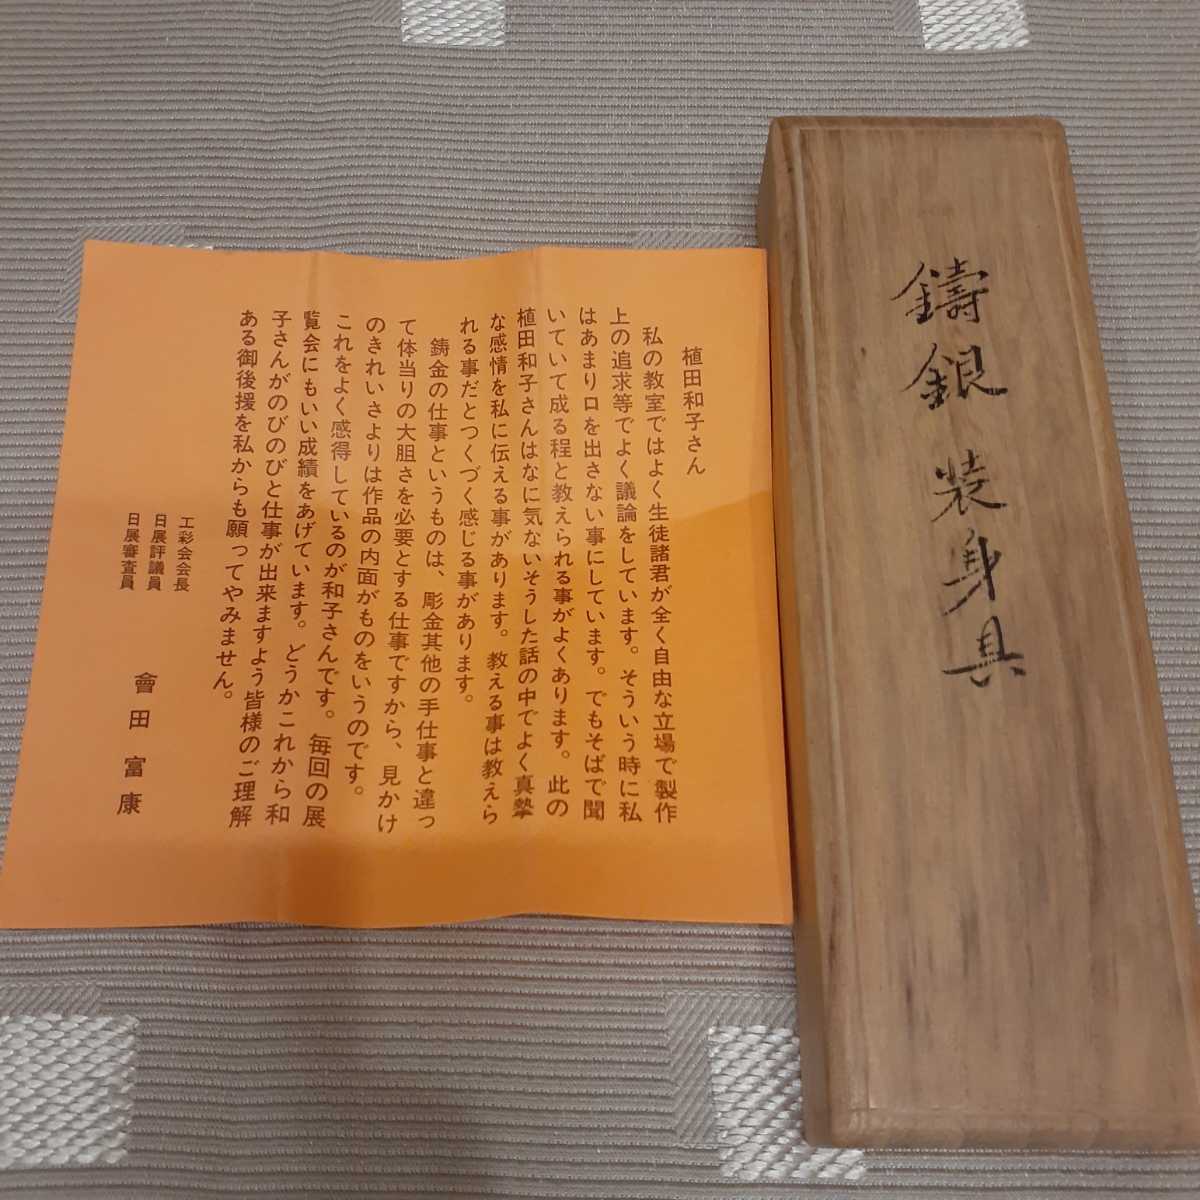 鋳銀装身具
植田和子さん
私の教室ではよく生徒諸君が全く自由な立場で製作
上の追求等でよく議論をしています。そういう時に私
はあまり口を出さない事にしています。でもそばで聞
いていて成る程と教えられる事がよくあります。此の
植田和子さんはなに気ないそうした話の中でよく真摯
な感情を私に伝える事があります。教える事は教えら
れる事だとつくづく感じる事があります。
鋳金の仕事というものは、彫金其他の手仕事と違っ
て体当りの大胆さを必要とする仕事ですから、見かけ
のきれいさよりは作品の内面がものをいうのです。
これをよく感得しているのが和子さんです。毎回の展
覧会にもいい成績をあげています。どうかこれから和
子さんがのびのびと仕事が出来ますよう皆様のご理解
ある御後援を私からも願ってやみません。
工彩会会長
日展評議員
日展審査員
會田富康